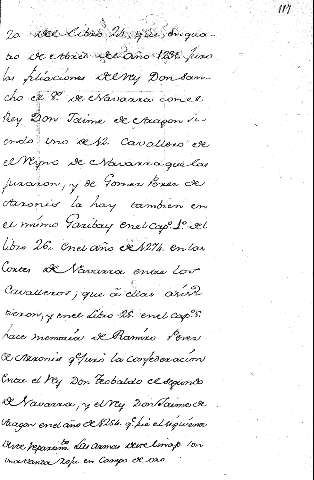 117
20 del Libro 24, que en quatro
de Abril del año 1231. Juro
las filiaciones del Rey Don Sancho
el 8º de Navarra con el
Rey Don Jaime de Aragon siendo
uno de los Cavalleros de
el Reyno de Navarra que las
juraron, y de Gomez Perez de
Arronis la hay tambien en
el mismo Garibay en el capº 1º del
libro 26. en el año de 1274. en las
Cortes de Navarra entre los
Cavalleros, que á ellas asistieron,
y en el Libro 25. en el capº 5.
hace memoria de Ramiro Perez
de Arronis qº Juró la confederación
Entre el Rey Don Teobaldo el segundo
de Navarra, y el Rey Don Jaime de
Aragon en el año de 1254. qº fue el siguiente
de su Las Armas de este linaje son
una vanda roja en Campo de oro.